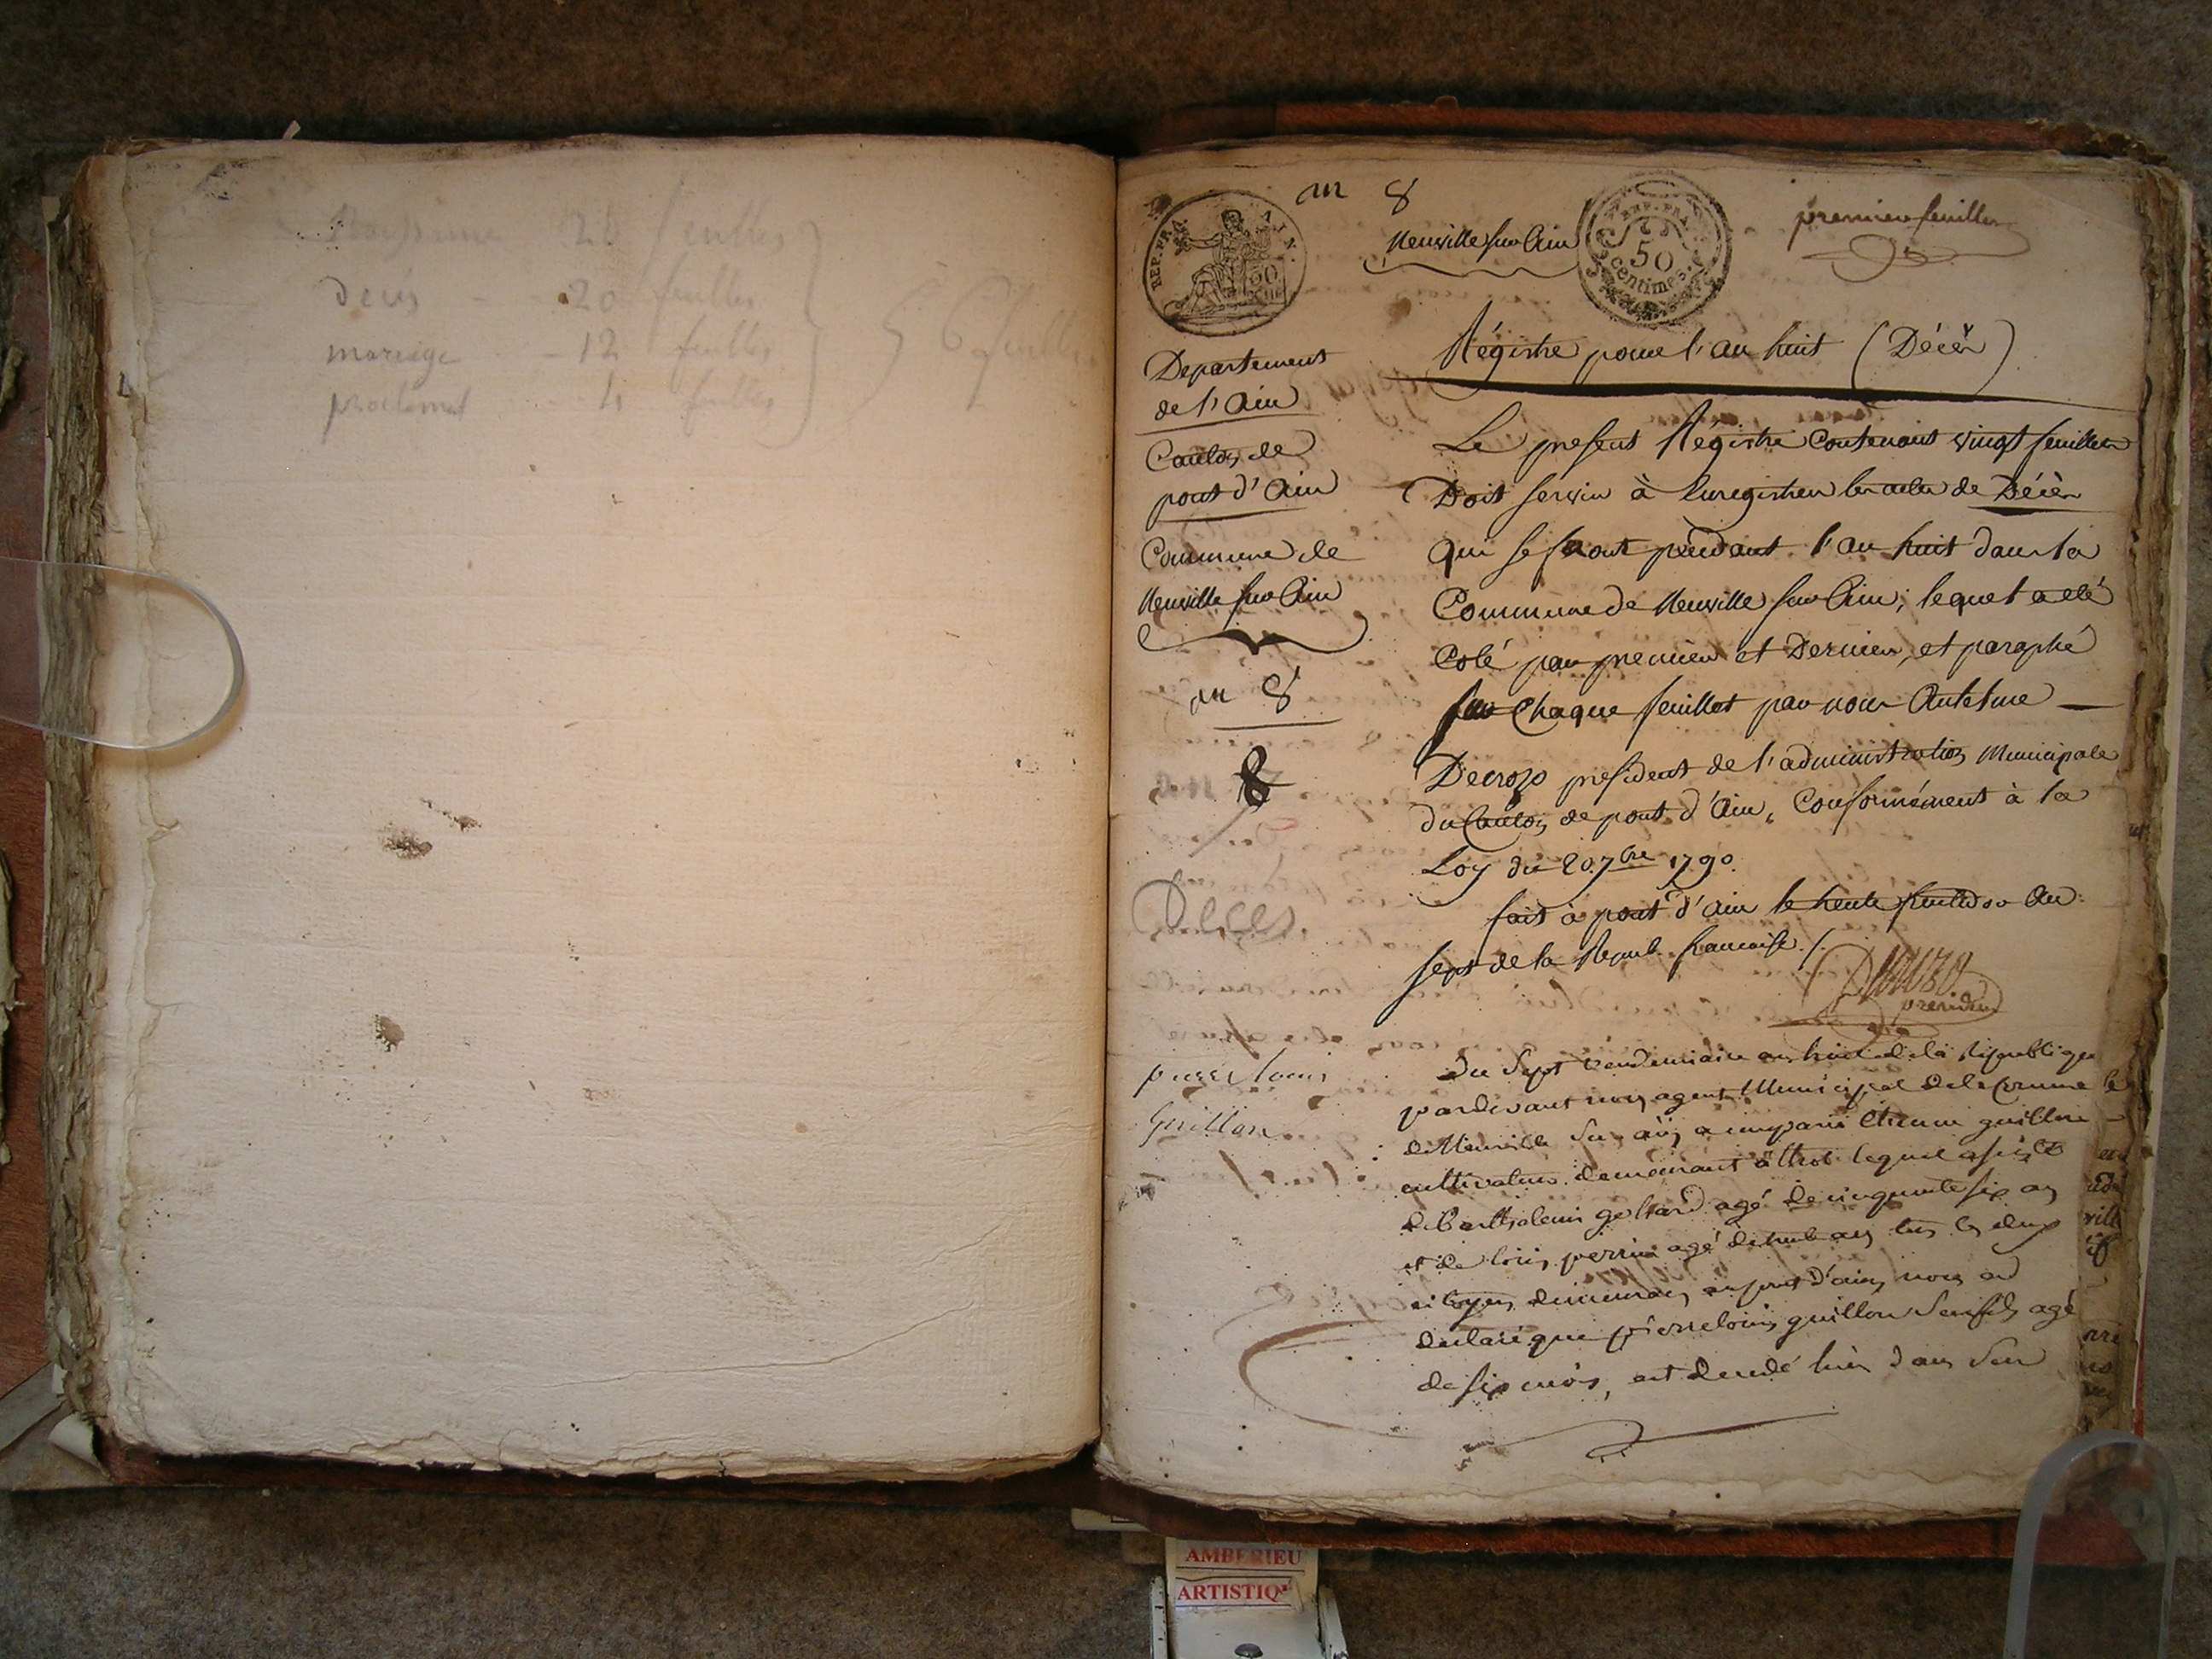 24 feuilles
décès - 20 feuilles
mariage - 12 feuilles
4 feuilles
an 8
Neuville sur Ain
premier feuillet
REP. FRA.
AIN.
REP. FRA.
50
centimes.
Régistre pour l'an huit (Décès)
Departement
de l'Ain
Canton de
pont d'Ain
Commune de
Neuville sur Ain
an 8
8
Deces
Le present Régistre Contenant vingt feuillets
Doit servir à Enregistrer les actes de Décès
qui se feront pendant l'an huit dans la
Commune de Neuville sur Ain; lequel a été
Coté par premier et Dernier, et paraphé
sur Chaque feuillet par nous Antelme
Decroso president de l'administration Municipale
du Canton de pont d'Ain, Conformément à la
Loy du 20 7bre 1790.
fait à pont d'ain le trente fructidor an
sept de la Repub. francaise ./.
president
pierre louis
Guillon
Du Sept vendemiaire an huit de la Republique
pardevant nous agent Municipal de la Commune
de Neuville Sur ain a comparu Etienne guillon
cultivateur demeurant à lequel assisté
de Barthelemi gollard agé de cinquante six ans
et de louis perrin agé de ans tous les deux
citoyens demeurans au pont d'ain, nous a
declaré que pierre louis guillon Son fils agé
de six mois, est decedé hier dans Son
AMBERIEU
ARTISTIQ